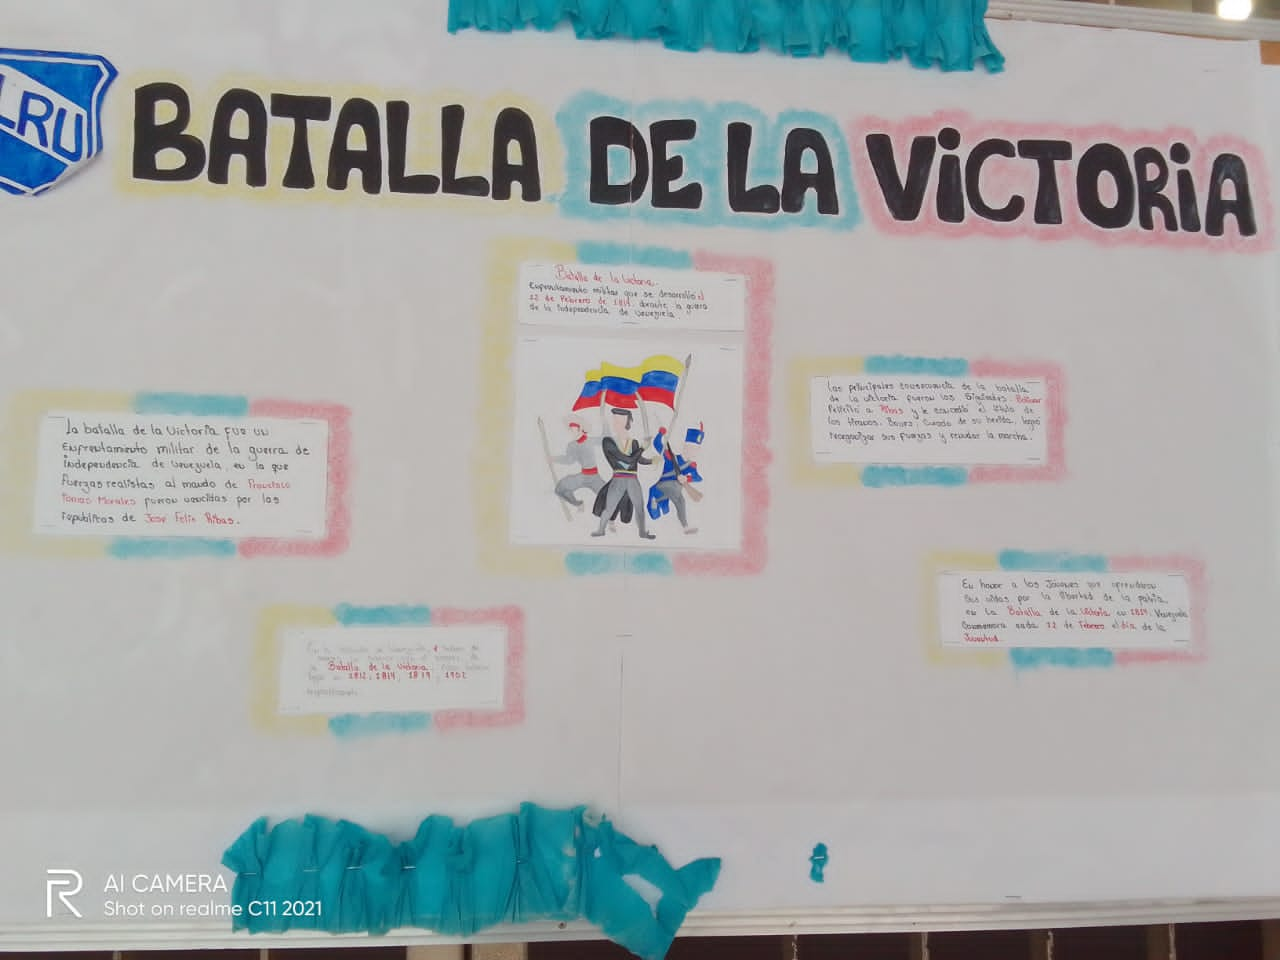 LRU
BATALLA DE LA VICTORIA
Batalla de la Victoria.
Enfrentamiento militar que se desarrolló el
12 de Febrero de 1814. durante la guerra
de la Independencia de Venezuela
La batalla de la Victoria fue un
enfrentamiento militar de la guerra de
independencia de Venezuela, en la que
fuerzas realistas al mando de Francisco
Tomas Morales fueron vencidas por las
republicas de José Felix Ribas.
Las principales consecuencia de la batalla
de la victoria fueron las siguientes: Bolivar
Felicitó a Ribas y le concedió el título de
los tiranos. Boves, curado de su herida, logró
reorganizar sus fuerzas y reanudar la marcha.
En honor a los Jóvenes que ofrendaron
sus vidas por la libertad de la patria,
en la Batalla de la Victoria en 1814. Venezuela
Conmemora cada 12 de Febrero el día de la
Juventud.
Batalla de la Victoria.
1812, 1814, 1902
AI CAMERA
Shot on realme C11 2021